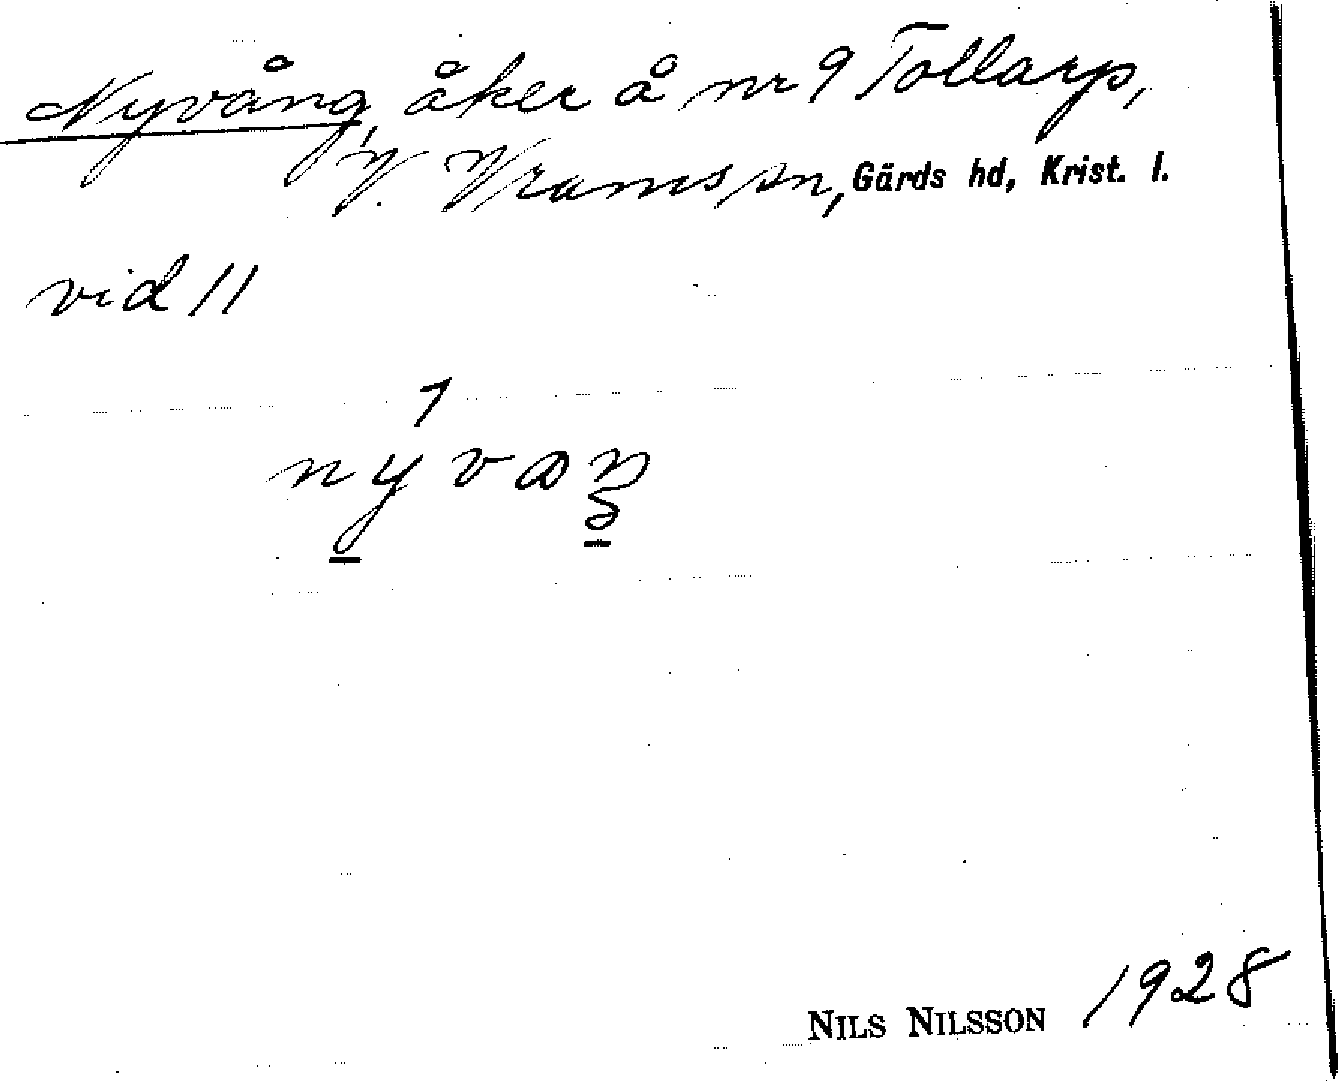 Nyvång, åker å nr 9 Tollarp,
V. Vrams sn, Gärds hd, Krist. l.
vid 11
NILS NILSSON 1928